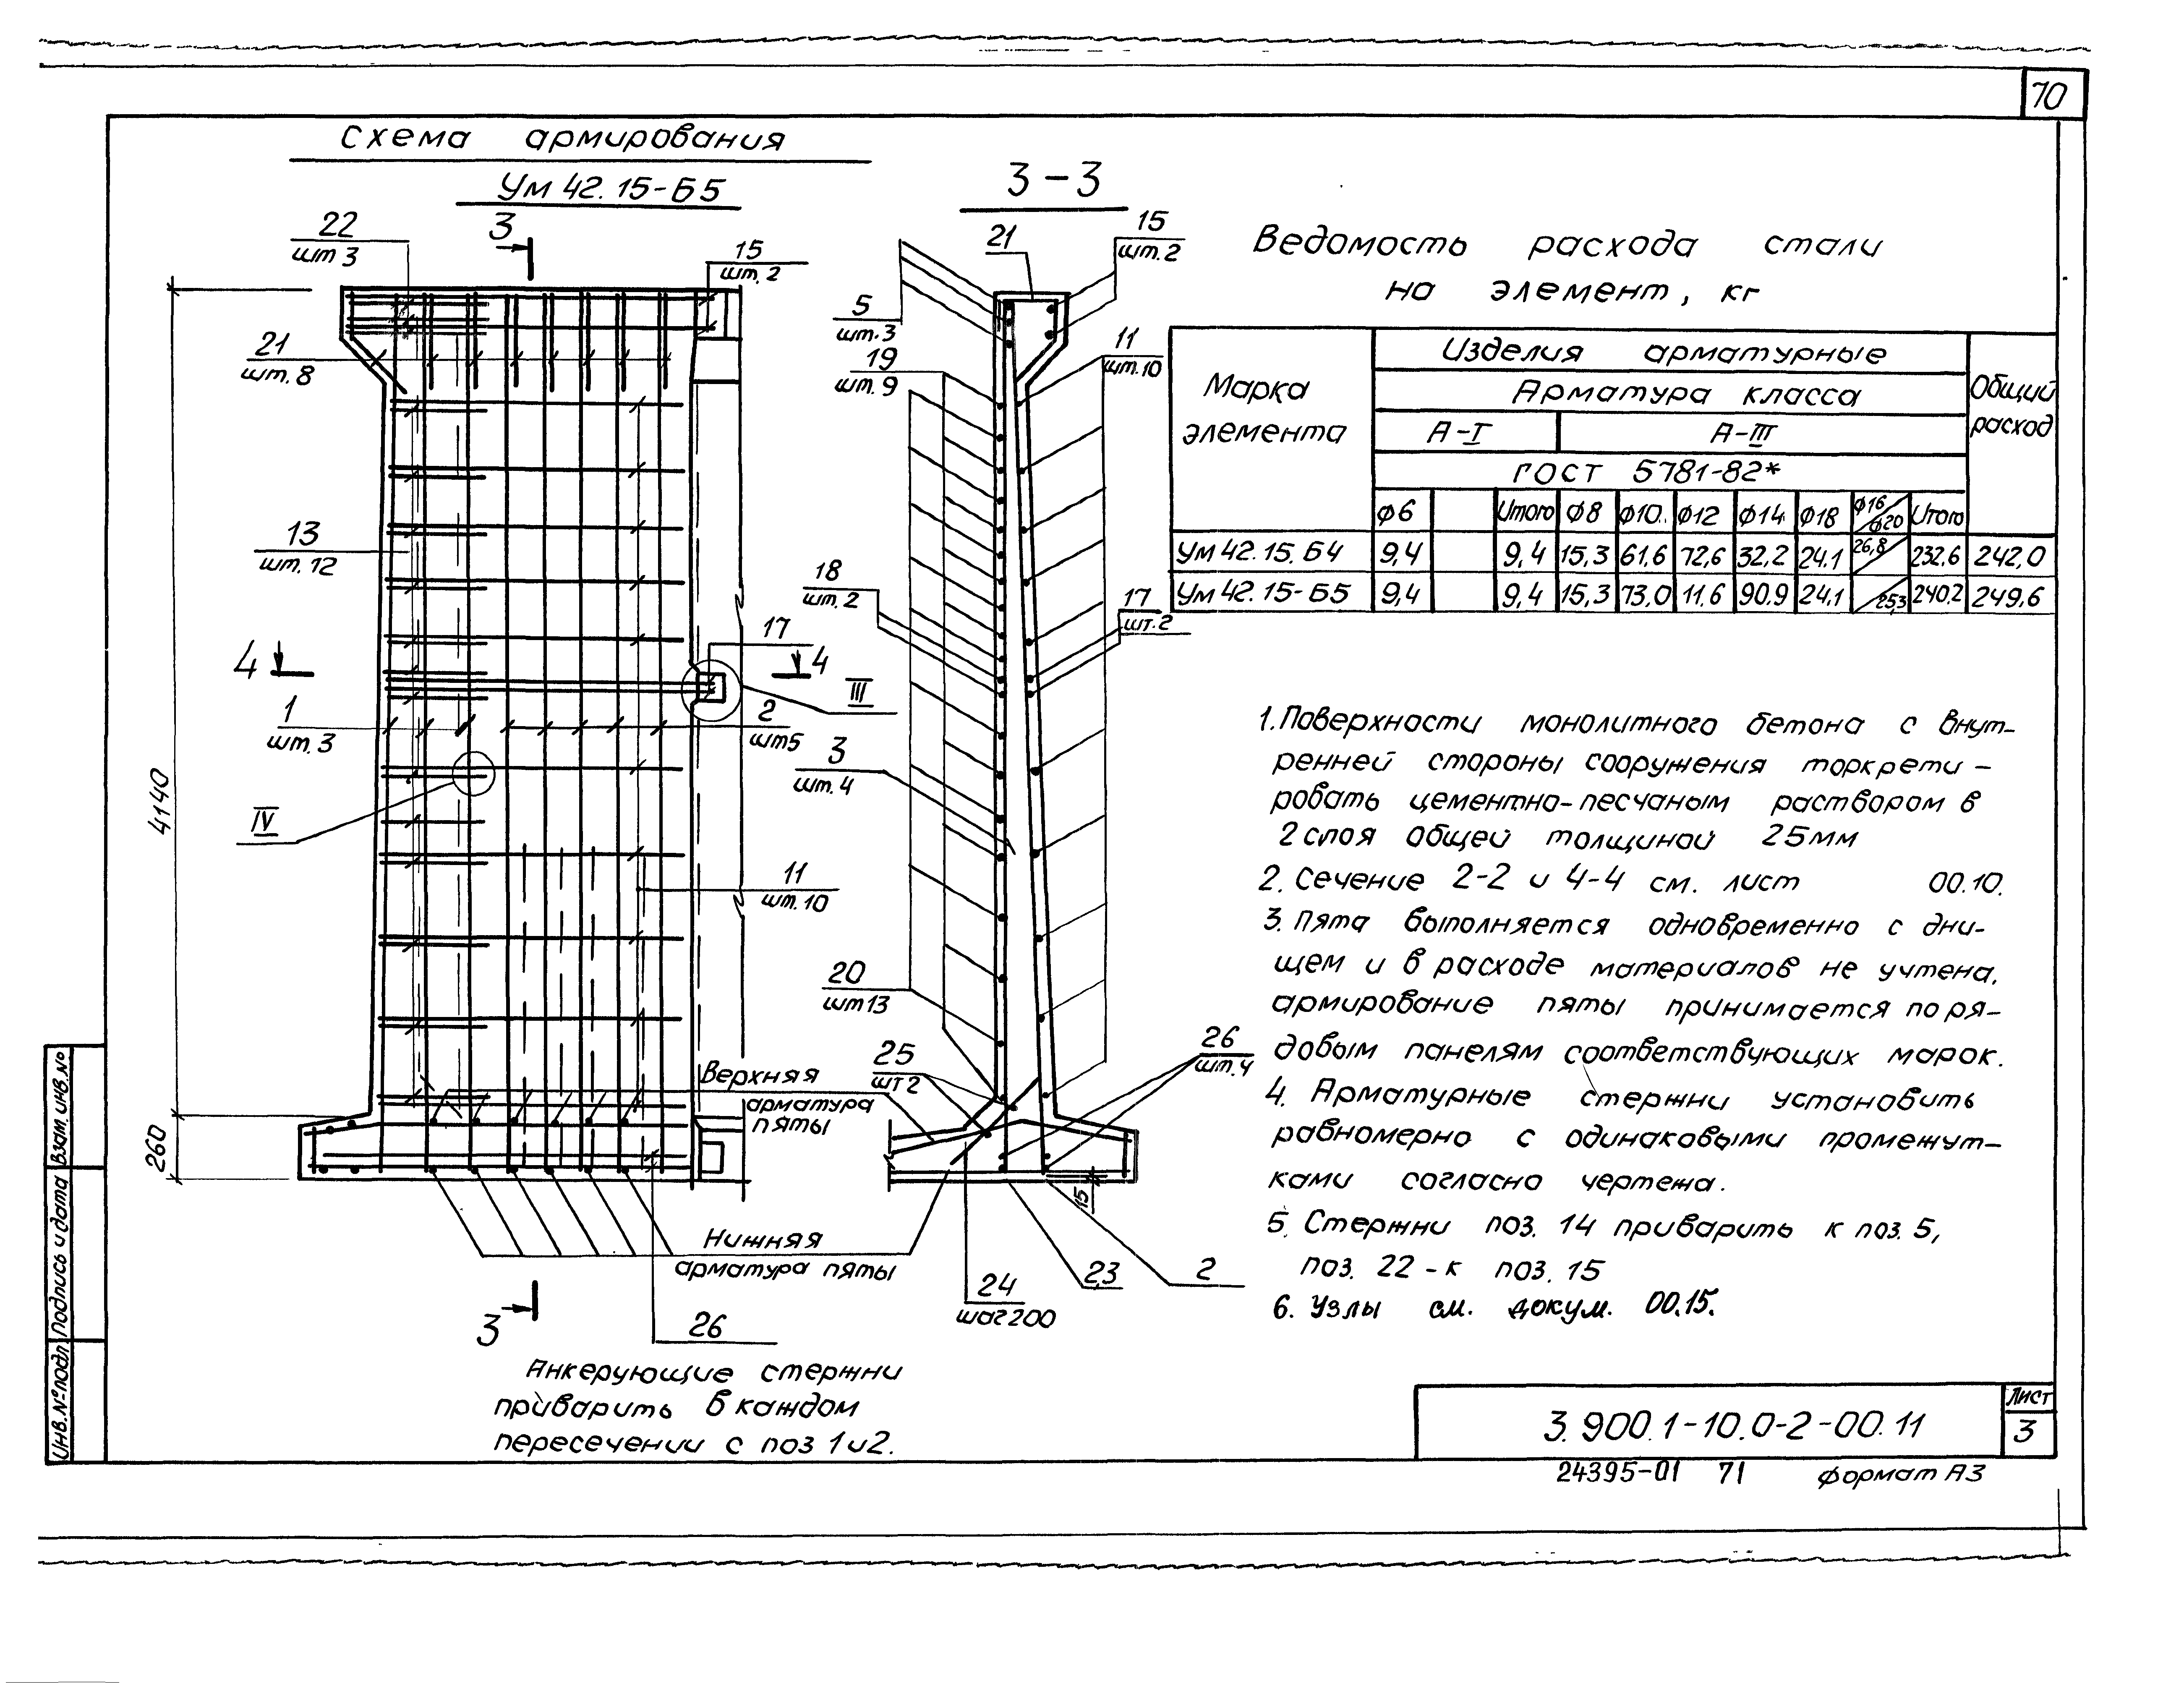 70
Схема армирования
Ум 42.15-Б5
3
22
шт 3
15
шт. 2
21
шт. 8
13
шт. 12
4
4
17
III
1
шт. 3
2
шт5
IV
11
шт. 10
4140
260
Верхняя
арматура
пяты
Нижняя
арматура пяты
3
26
Анкерующие стержни
приварить в каждом
пересечении с поз 1 и 2.
3-3
21
15
шт. 2
5
шт. 3
19
шт. 9
11
шт. 10
18
шт. 2
17
шт. 2
3
шт. 4
20
шт 13
25
шт 2
26
шт. 4
15
24
шаг 200
23
2
Ведомость расхода стали
на элемент, кг
Марка элемента
Изделия арматурные
Общий расход
Арматура класса
А-I А-III
ГОСТ 5781-82*
ф6 Итого ф8 ф10 ф12 ф14 ф18 ф16/ф20 Итого
Ум 42.15.Б4 9,4 9,4 15,3 61,6 72,6 32,2 24.1 26,8 232.6 242,0
Ум 42.15-Б5 9,4 9,4 15,3 73,0 11.6 90.9 24,1 25,3 240.2 249,6
1. Поверхности монолитного бетона с внут-
ренней стороны сооружения торкрети-
ровать цементно-песчаным раствором в
2 слоя общей толщиной 25мм
2. Сечение 2-2 и 4-4 см. лист 00.10.
3. Пята выполняется одновременно с дни-
щем и в расходе материалов не учтена,
армирование пяты принимается по ря-
довым панелям соответствующих марок.
4. Арматурные стержни установить
равномерно с одинаковыми промежут-
ками согласно чертежа.
5. Стержни поз. 14 приварить к поз. 5,
поз. 22 - к поз. 15
6. Узлы см. докум. 00.15.
Инв. № подл. Подпись и дата Взам. инв. №
3.900.1-10.0-2-00.11
Лист
3
24395-01 71 формат А3